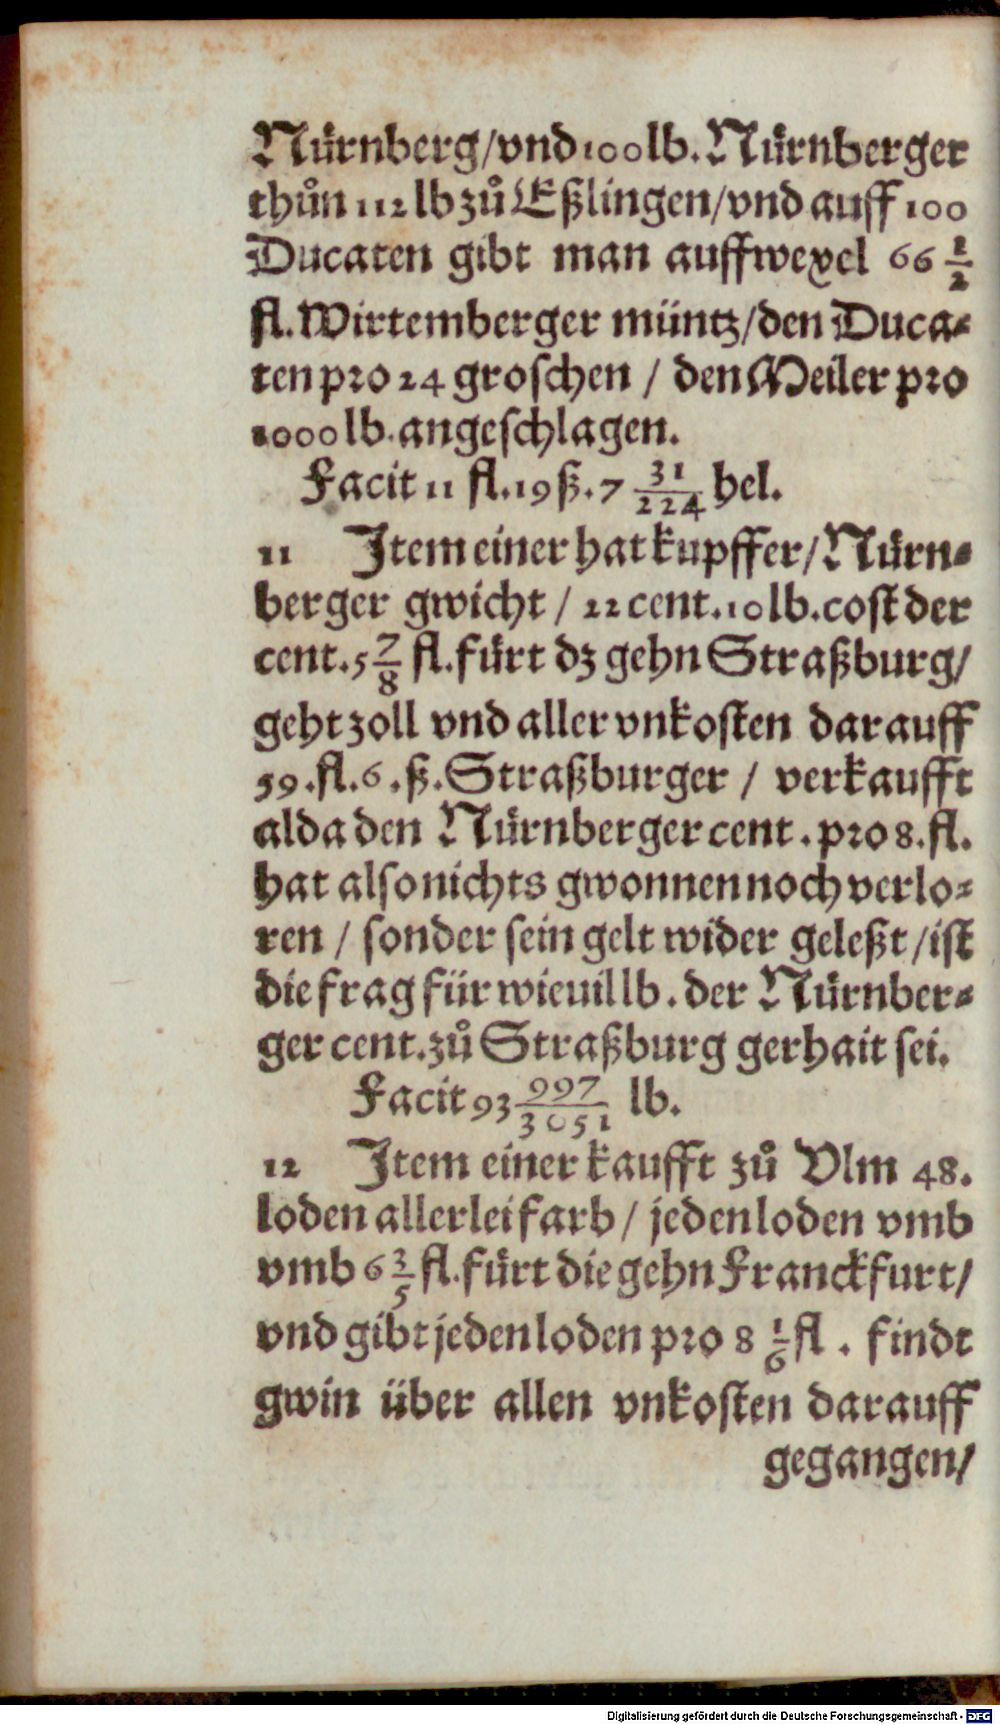 Nuͤrnberg/vnd 100 lb. Nuͤrnberger
thuͦn 112 lb zuͦ Eßlingen/vnd auff 100
Ducaten gibt man auffwexel 66 1/2
fl. Wirtemberger müntz/den Duca⸗
ten pro 24 groschen / den Meiler pro
1000 lb. angeschlagen.
Facit 11 fl. 19 ß. 7 31/224 hel.
11 Item einer hat kupffer/Nuͤrn⸗
berger gwicht / 22 cent. 10 lb. cost der
cent. 5 7/8 fl. fuͤrt dz gehn Straßburg/
geht zoll vnd aller vnkosten darauff
59. fl. 6. ß. Straßburger / verkaufft
alda den Nuͤrnberger cent. pro 8. fl.
hat also nichts gwonnen noch verlo⸗
ren / sonder sein gelt wider geleßt/ist
die frag für wieuil lb. der Nuͤrnber⸗
ger cent. zuͦ Straßburg gerhait sei.
Facit 93 997/3051 lb.
12 Item einer kaufft zuͦ Vlm 48.
loden allerlei farb/ jeden loden vmb
vmb 6 2/5 fl. fuͤrt die gehn Franckfurt/
vnd gibt jeden loden pro 8 1/6 fl. findt
gwin über allen vnkosten darauff
gegangen/
Digitalisierung gefördert durch die Deutsche Forschungsgemeinschaft - DFG